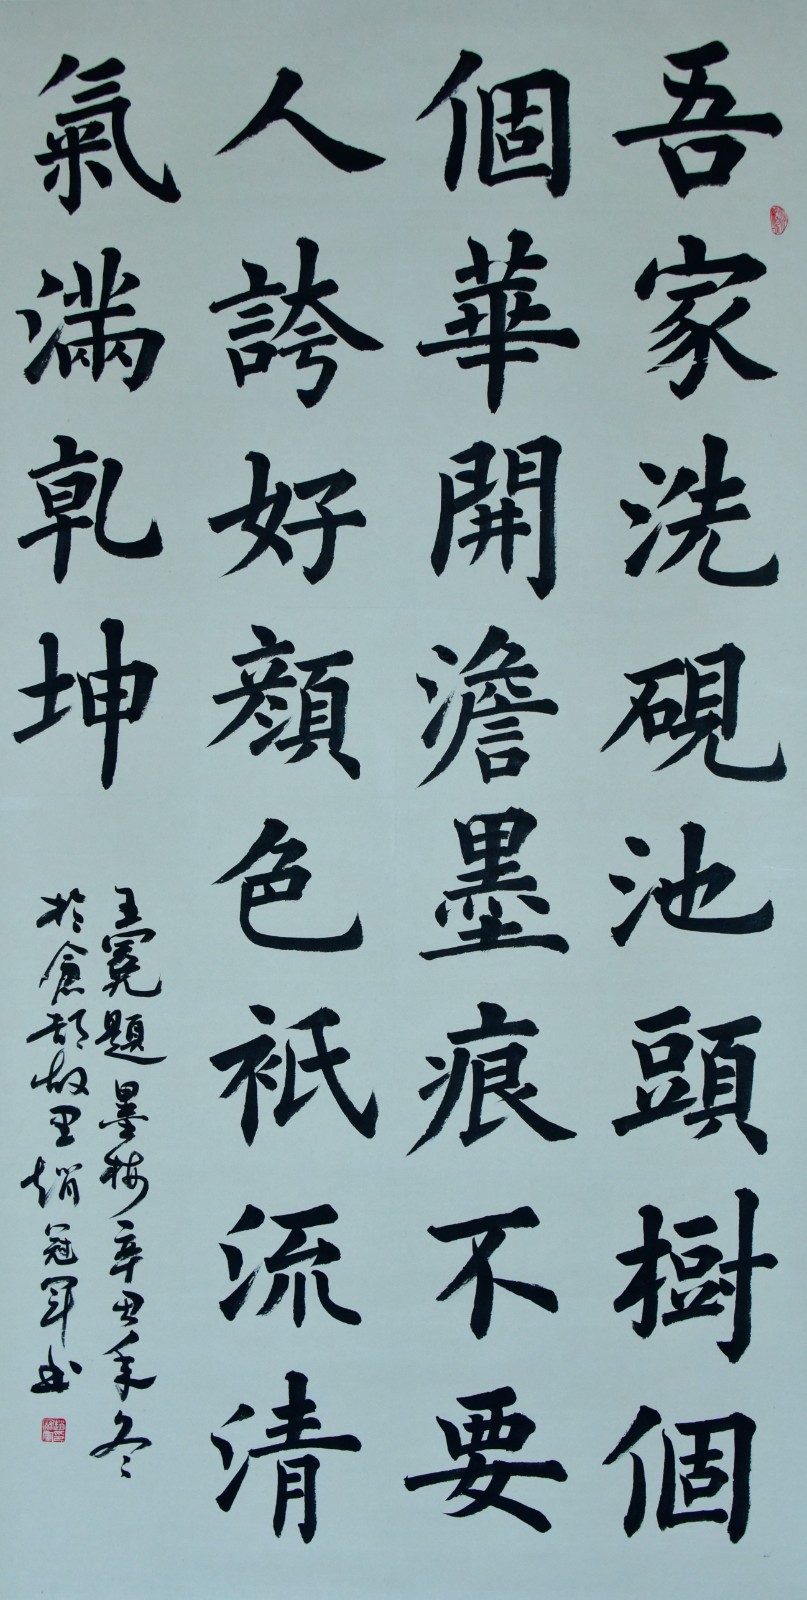 吾家洗硯池頭樹個
個華開澹墨痕不要
人誇好顔色祇流清
氣滿乾坤
王冕題墨梅辛丑年冬
於倉頡故里趙冠軍書